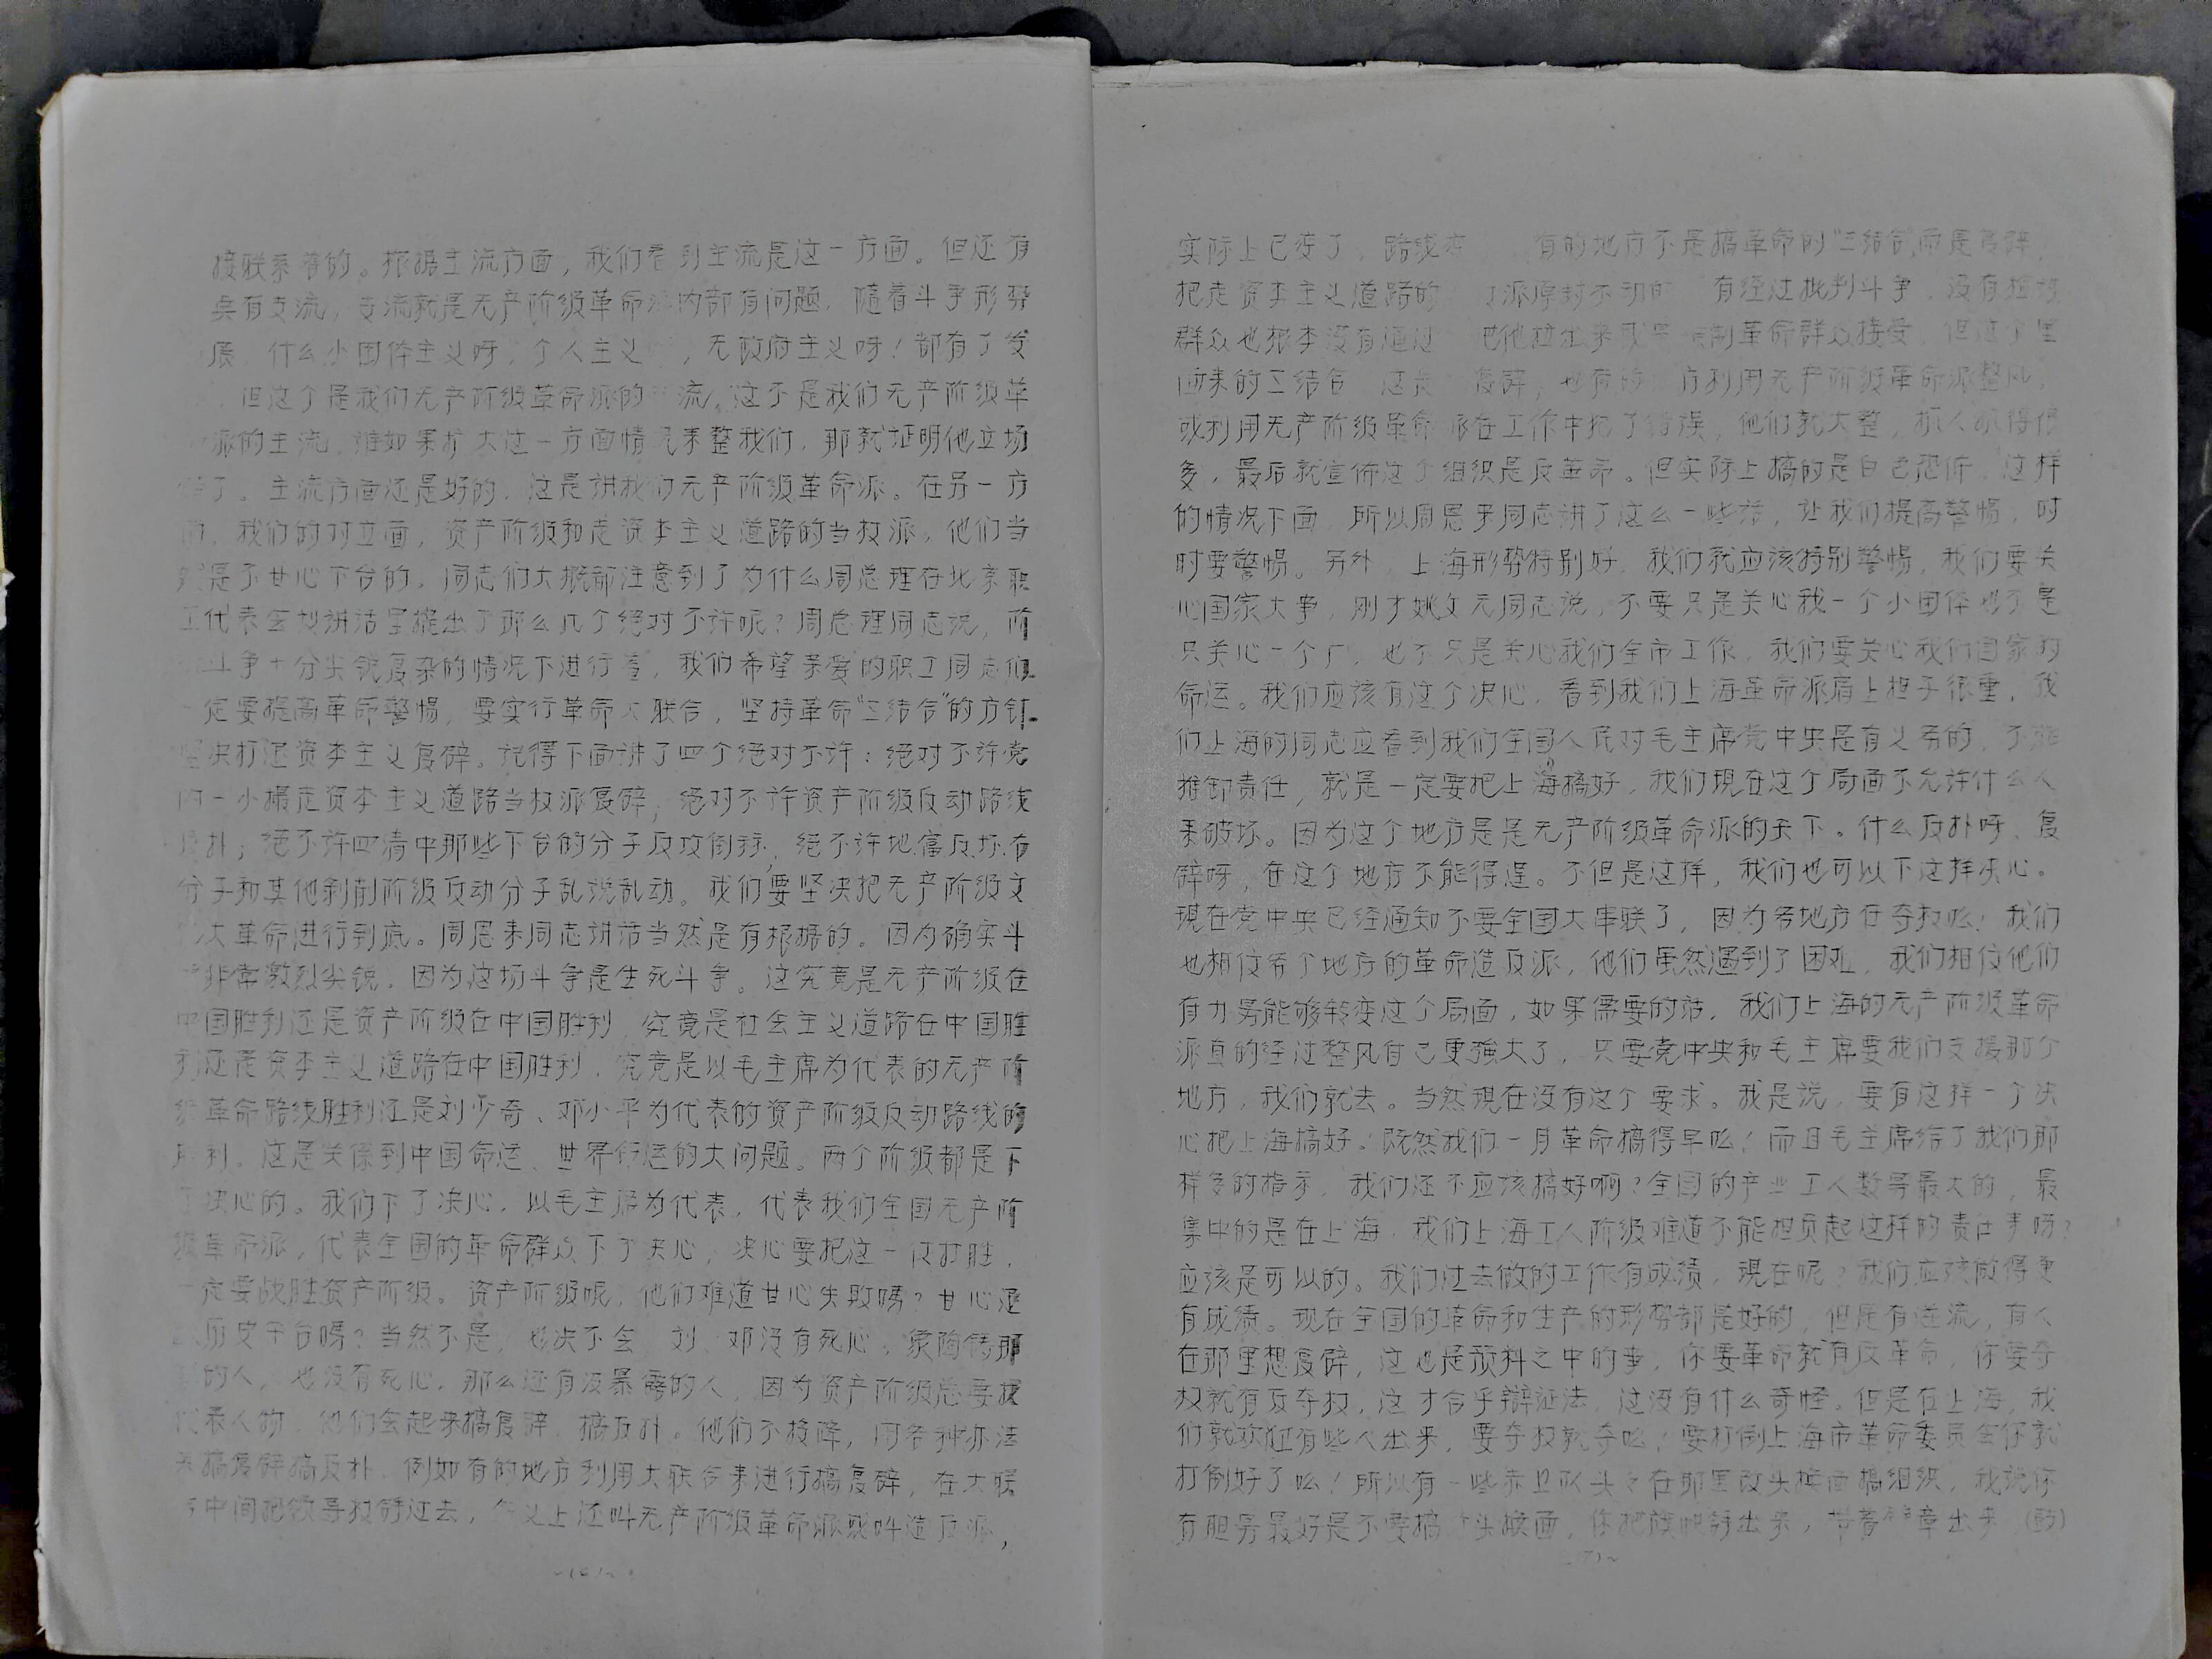 接联系着的。根据主流方面，我们看到主流是这一方面。但还有
矣有支流，支流就是无产阶级革命派内部有问题，随着斗争形势
展，什么小团体主义呀，个人主义，无政府主义呀！都有了发
，但这个是我们无产阶级革命派的流。这不是我们无产阶级革
派的主流，谁如果扩大这一方面情况来整我们，那就证明他立场
了。主流方面还是好的，这是讲我们无产阶级革命派。在另一方
面，我们的对立面，资产阶级和走资本主义道路的当权派。他们当
然是不甘心下台的。同志们大概都注意到了为什么周总理在北京职
工代表会判讲话里提出了那么几个绝对不许呢？周总理同志说，阶
斗争十分尖锐复杂的情况下进行着，我们希望亲爱的职工同志们
一定要提高革命警惕，要实行革命大联合，坚持革命“三结合”的方针。
坚决打还资本主义复辟。记得下面讲了四个绝对不许：绝对不许党
内一小撮走资本主义道路当权派复辟，绝对不许资产阶级反动路线
反扑；绝不许四清中那些下台的分子反攻倒算，绝不许地富反坏右
分子和其他剥削阶级反动分子乱说乱动。我们要坚决把无产阶级文
化大革命进行到底。周恩来同志讲话当然是有根据的。因为确实斗
争非常激烈尖锐，因为这场斗争是生死斗争。这究竟是无产阶级在
中国胜利还是资产阶级在中国胜利，究竟是社会主义道路在中国胜
利还是资本主义道路在中国胜利，究竟是以毛主席为代表的无产阶
级革命路线胜利还是刘少奇、邓小平为代表的资产阶级反动路线的
胜利。这是关係到中国命运、世界命运的大问题。两个阶级都是下
了决心的。我们下了决心，以毛主席为代表，代表我们全国无产阶
级革命派，代表全国的革命群众下了决心，决心要把这一仗打胜，
一定要战胜资产阶级。资产阶级呢，他们难道甘心失败吗？甘心退
出历史午台吗？当然不是，也决不会，刘、邓没有死心，象陶铸那
的人，也没有死心，那么还有没暴露的人，因为资产阶级总要找
代表人物，他们会起来搞复辟，搞反扑。他们不投降，用各种办法
来搞复辟搞反扑，例如有的地方利用大联合来进行搞复辟，在大联
合中间把领导权辟过去，名义上还叫无产阶级革命派或叫造反派，
~(6)~
实际上已变了，路线变，有的地方不是搞革命的“三结合”而是复辟，
把走资本主义道路的派原封不动的有经过批判斗争，没有经过
群众也根本没有通过把他拉出来强制革命群众接受，但这个里
面来的三结合，这是复辟，也有的方利用无产阶级革命派整风，
或利用无产阶级革命派在工作中犯了错误，他们就大整，抓人抓得很
多，最后就宣佈这个组织是反革命。但实际上搞的是白色恐怖，这样
的情况下面，所以周恩来同志讲了这么一些话，让我们提高警惕，时
时要警惕。另外，上海形势特别好，我们就应该特别警惕，我们要关
心国家大事，刚才姚文元同志说，不要只是关心我一个小团体也不是
只关心一个厂，也不只是关心我们全市工作，我们要关心我们国家的
命运。我们应该有这个决心，看到我们上海革命派肩上担子很重，我
们上海的同志应看到我们全国人民对毛主席党中央是有义务的，不能
推卸责任，就是一定要把上海搞好，我们现在这个局面不允许什么人
来破坏。因为这个地方是是无产阶级革命派的天下。什么反扑呀、复
辟呀，在这个地方不能得逞。不但是这样，我们也可以下这样决心。
现在党中央已经通知不要全国大串联了，因为各地方在夺权么！我们
也相信各个地方的革命造反派，他们虽然遇到了困难，我们相信他们
有力量能够转变这个局面，如果需要的话，我们上海的无产阶级革命
派真的经过整风自己更强大了，只要党中央和毛主席要我们支援那个
地方，我们就去。当然现在没有这个要求。我是说，要有这样一个决
心把上海搞好。既然我们一月革命搞得早么！而且毛主席给了我们那
样多的指示，我们还不应该搞好啊？全国的产业工人数量最大的，最
集中的是在上海，我们上海工人阶级难道不能担负起这样的责任来吗？
应该是可以的。我们过去做的工作有成绩，现在呢？我们应该做得更
有成绩。现在全国的革命和生产的形势都是好的，但是有逆流，有人
在那里想复辟，这也是预料之中的事，你要革命就有反革命，你要夺
权就有反夺权，这才合乎辩证法，这没有什么奇怪。但是在上海，我
们就欢迎有些人出来，要夺权就夺么！要打倒上海市革命委员会你就
打倒好了么！所以有一些赤卫队头々在那里改头换面搞组织，我说你
有胆量最好是不要搞头换面，你把旗帜辟出来，带着章出来（鼓）
~(7)~